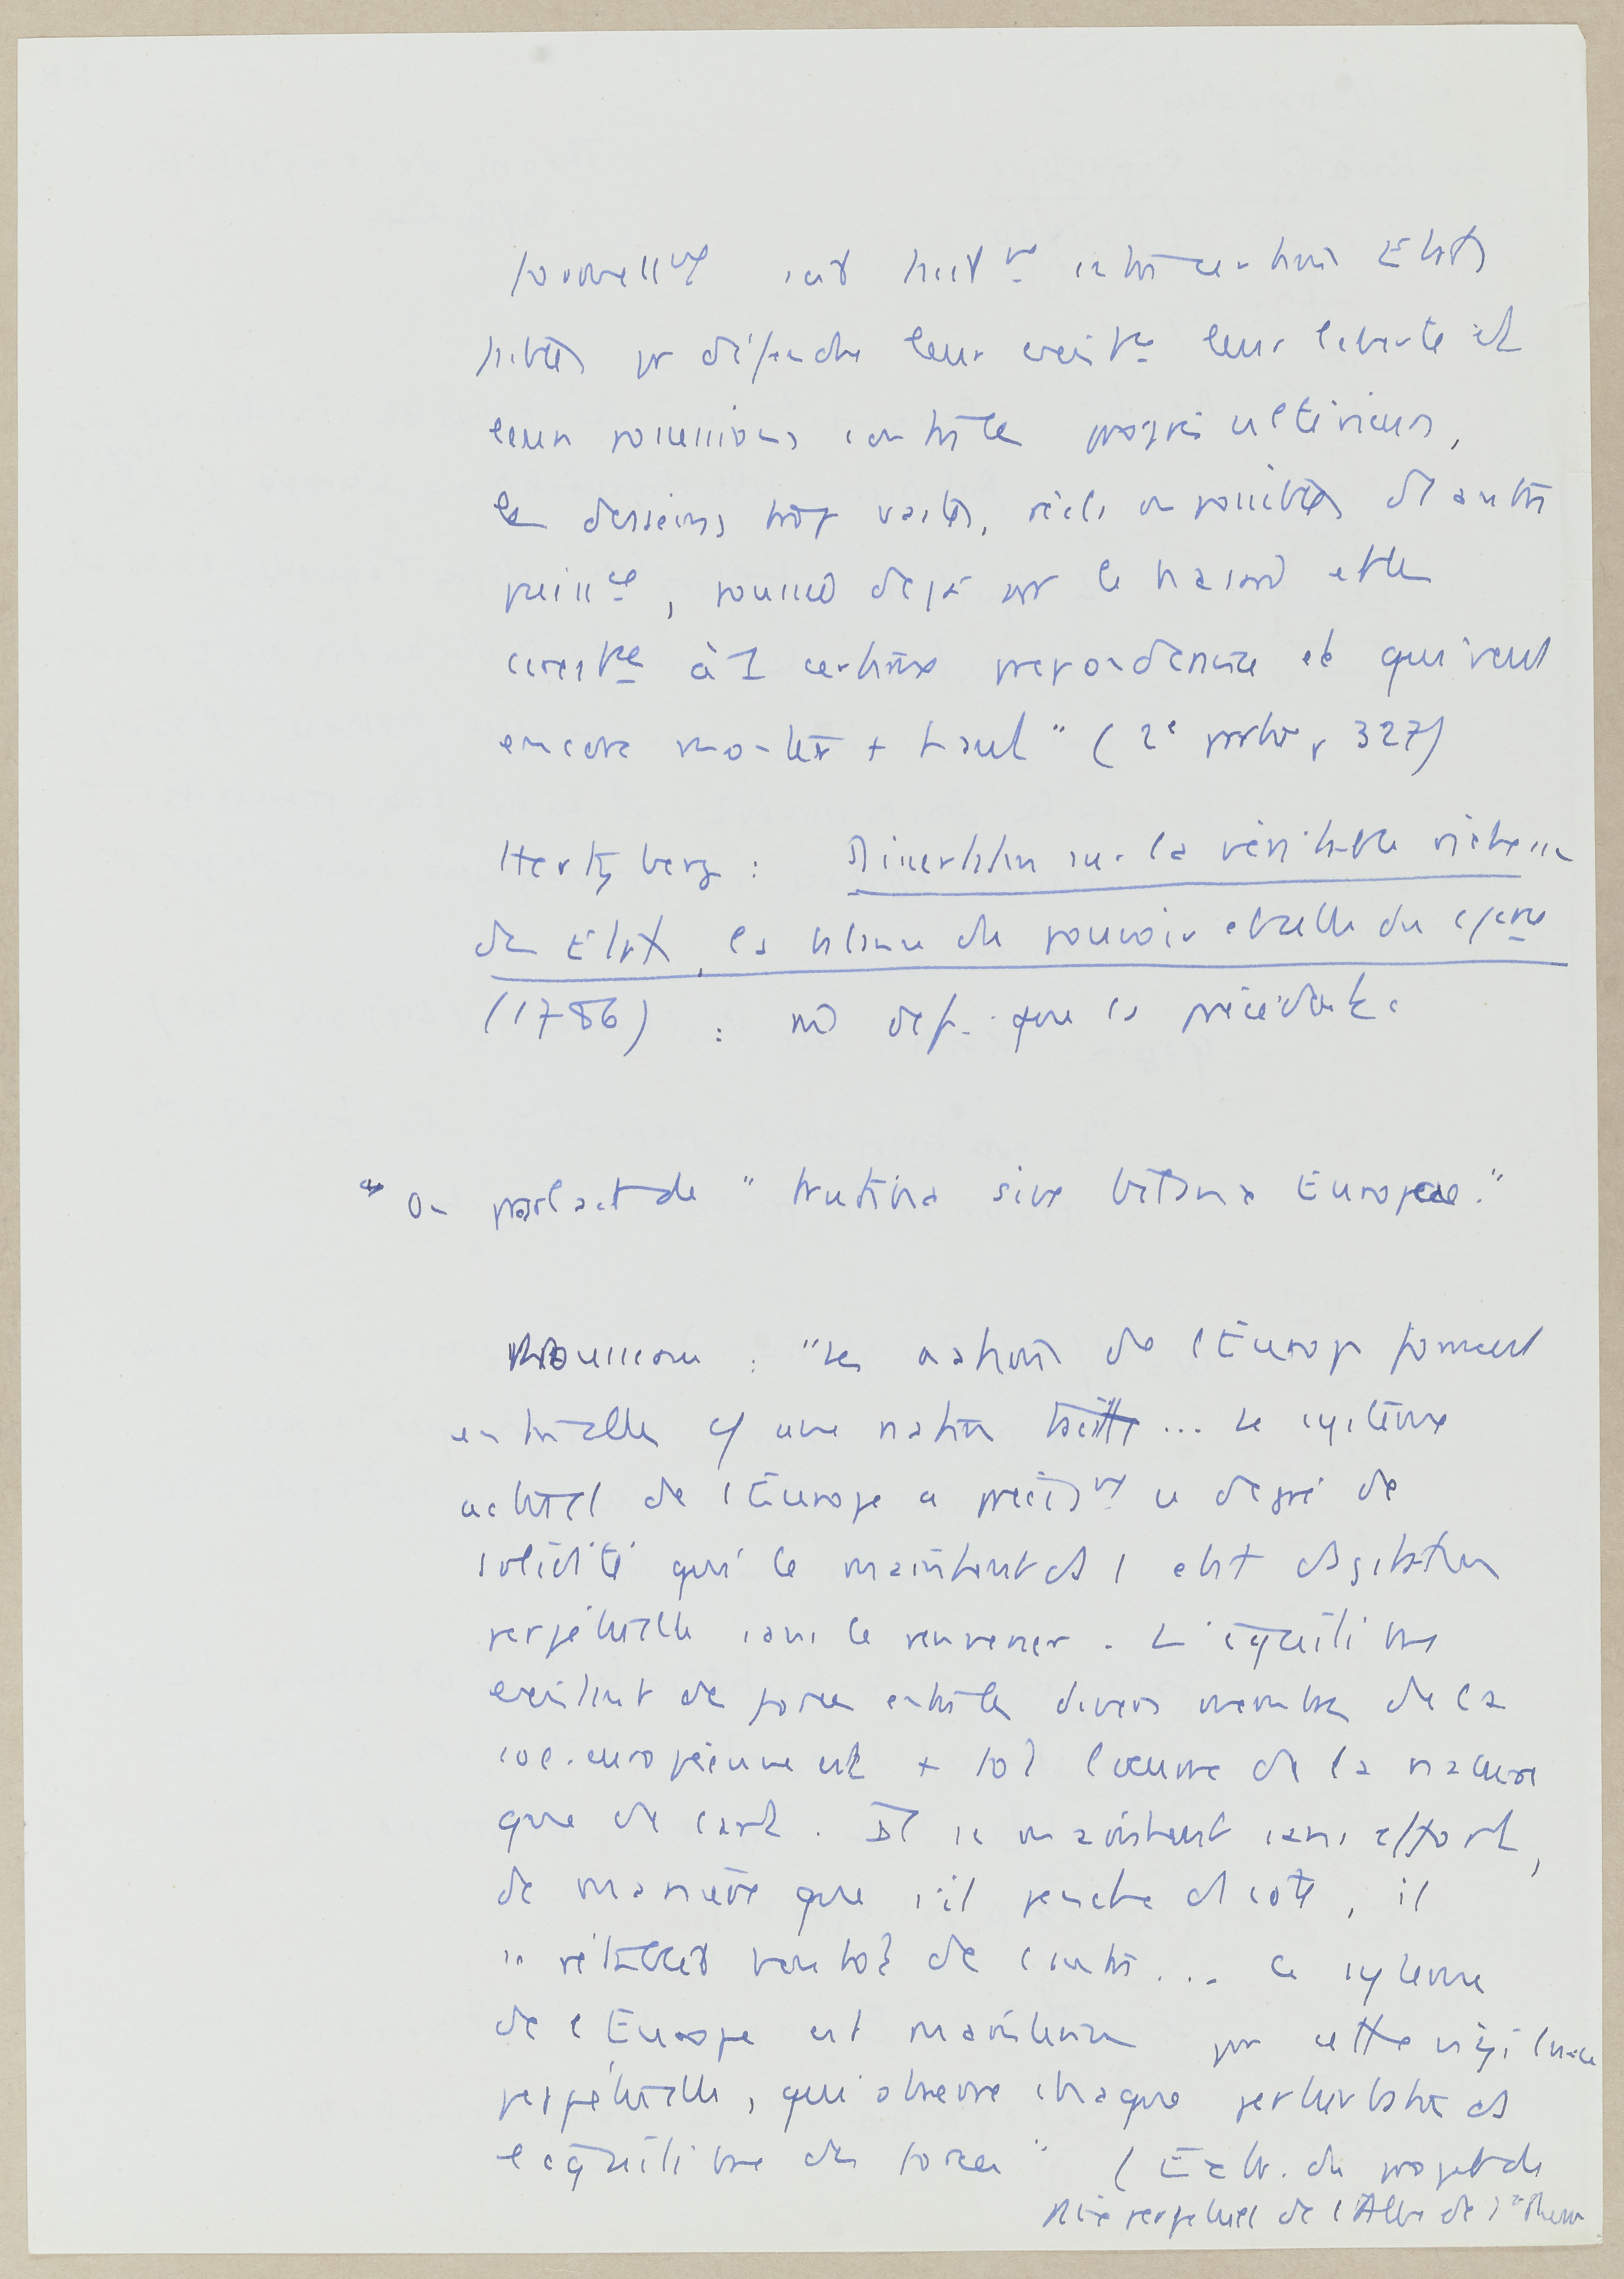 formellmt soit tacitmt entre certains Etats
faibles pr défendre leur existce leur liberté et
leurs possessions contre les progrès ultérieurs,
les desseins trop vastes, réels ou possibles d'1 autre
puissce, poussé déjà par le hasard et les
circstces à 1 certaine prépondérance et qui veut
encore monter + haut" (2e partie p 327)
Hertzberg : Dissertation sur la véritable richesse
des Etats, la balance du pouvoir et celle du commerce
(1786) : m def. que la précédente.
On parlait de " trutina sive bilanx Europae."
Rousseau : "Les nations de l'Europe forment
entre elles cô une nation tacite ... Le système
actuel de l'Europe a précisémt le degré de
solidité qui le maintient ds 1 état d'agitation
perpétuelle sans le renverser. L'équilibre
existant des forces entre les divers membres de la
soc. européenne est + tôt l'œuvre de la nature
que de l'art. Il se maintient sans effort,
de manière que s'il penche d'1 côté, il
se rétablit bientôt de l'autre ... Le système
de l'Europe est maintenu par cette vigilance
perpétuelle, qui observe chaque perturbation ds
l'équilibre des forces" (Extr. du projet de
Paix perpétuel de l'Abbé de St Pierre